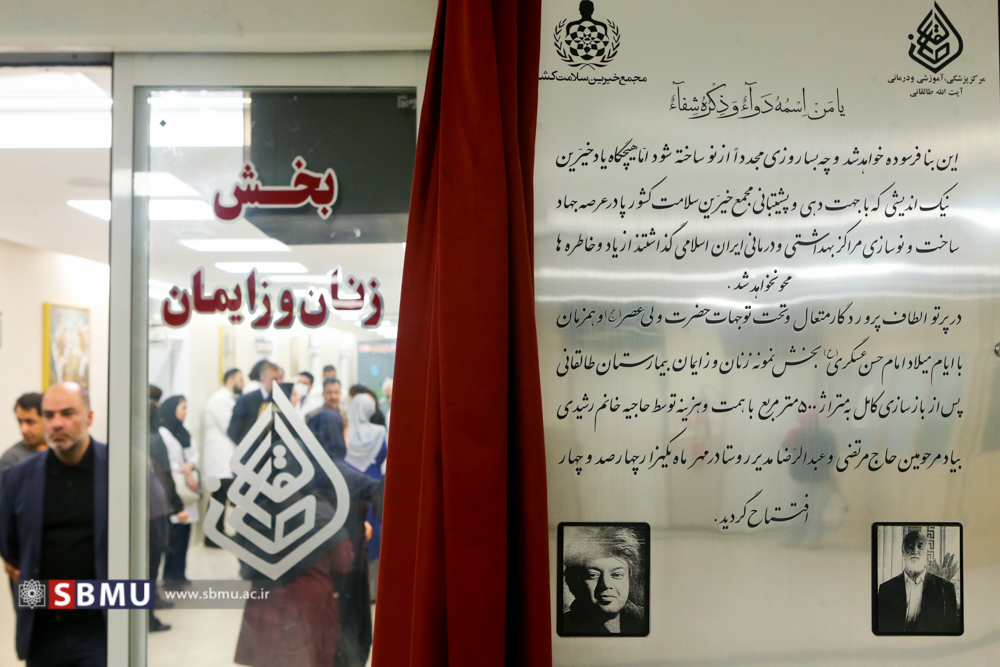 مجمع خیرین سلامت کشور
مرکز پزشکی، آموزشی و درمانی
آیت الله طالقانی
یا مَنِ اسْمُهُ دَوآءٌ وَ ذِکْرُهُ شِفآءٌ
این بنا فرسوده خواهد شد و چه بسا روزی مجدداً از نو ساخته شود اما هیچگاه یاد خیّرین
نیک اندیشی که با جهت دهی و پشتیبانی مجمع خیرین سلامت کشور پا در عرصه جهاد
ساخت و نوسازی مراکز بهداشتی و درمانی ایران اسلامی گذاشتند از یاد و خاطره ها
محو نخواهد شد.
در پرتو الطاف پروردگار متعال و تحت توجهات حضرت ولی عصر(عج) و همزمان
با ایام میلاد امام حسن عسگری(ع) بخش نمونه زنان و زایمان بیمارستان طالقانی
پس از بازسازی کامل به متراژ ۵۰۰ متر مربع با همت و هزینه توسط حاجیه خانم رشیدی
بیاد مرحومین حاج مرتضی و عبدالرضا مدیر روستا در مهر ماه یکهزار چهارصد و چهار
افتتاح گردید.
بخش
زنان و زایمان
طالقانی
SBMU
www.sbmu.ac.ir